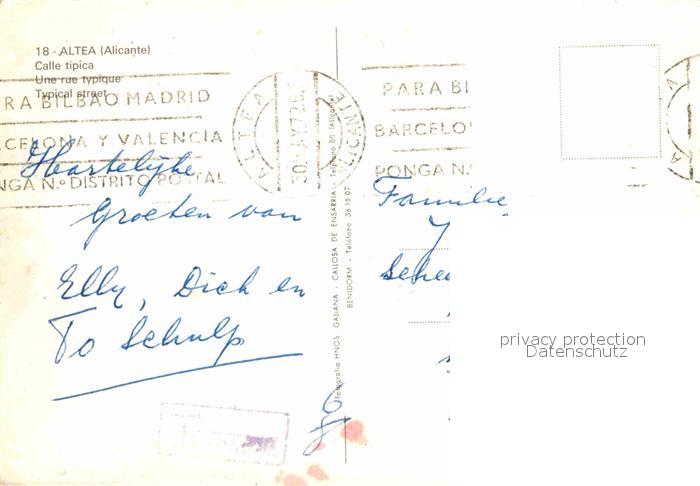 18 - ALTEA (Alicante)
Calle típica
Une rue typique
Typical street
RA BILBAO MADRID
CELONA Y VALENCIA
NGA N.º DISTRITO POSTAL
ALTEA
ALICANTE
PARA BI
BARCELO
PONGA N.º
Hartelijke
groeten van
Elly, Dick en
To Schulp
Fotografía HNOS. GALIANA - CALLOSA DE ENSARRIA - Teléfono 80 (Alicante)
BENIDORM - Teléfono 36 15 07
Familie
Sche
privacy protection
Datenschutz